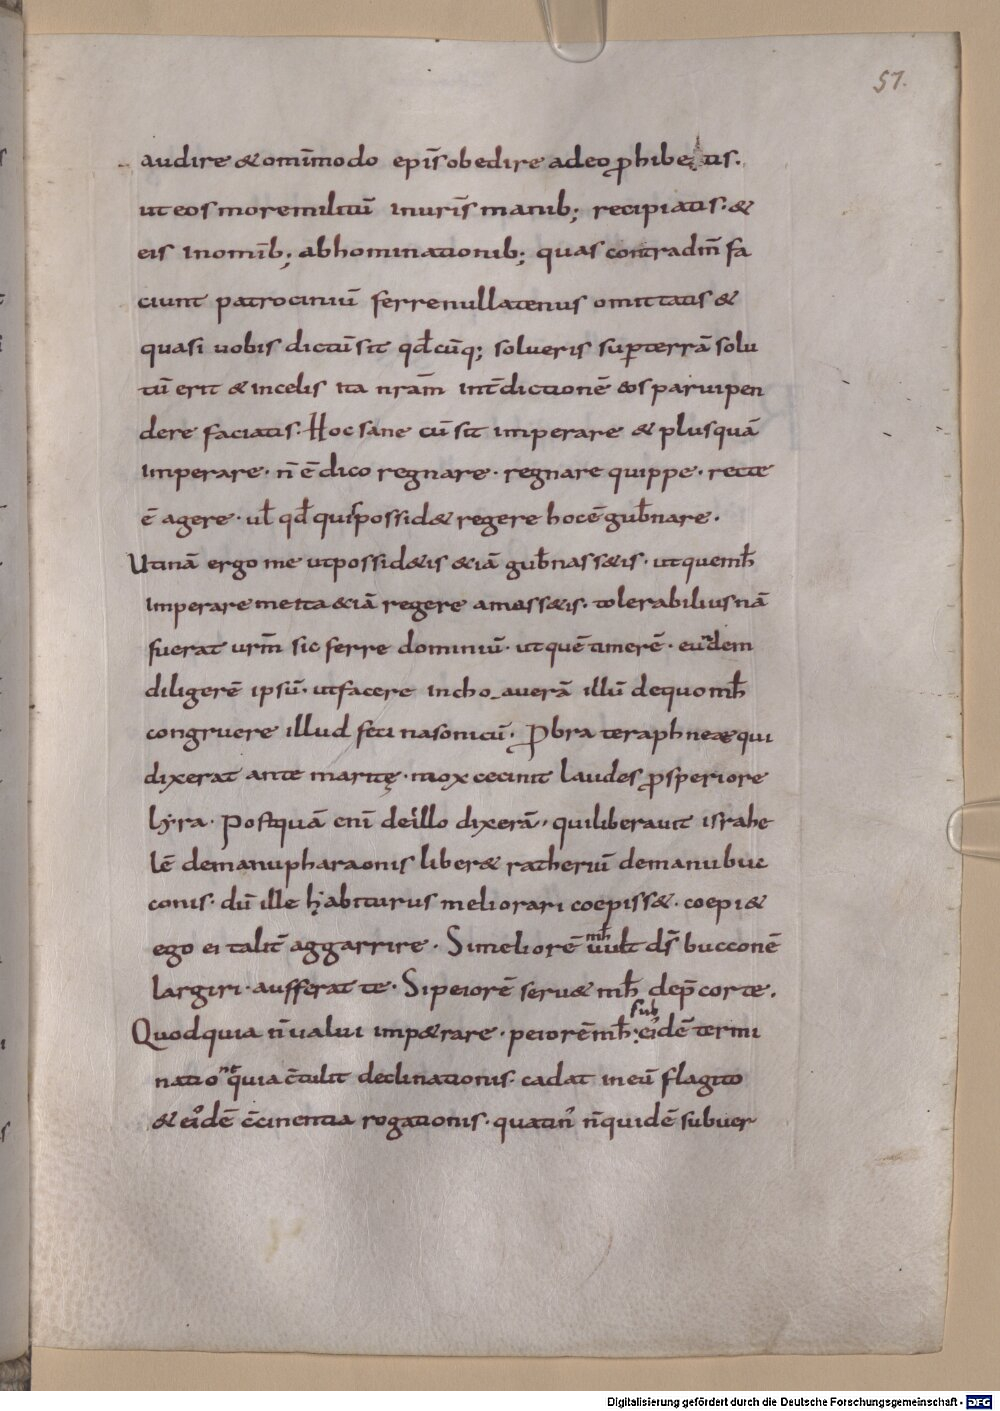 57.
audire & omīmodo epīs obedire adeo ꝓhibetis.
ut eos more militū in urīs manib; recipiatis. &
eis in omīb; abhominationib; quas contra dm̄ fa
ciunt patrociniū ferre nullatenus omittatis &
quasi uobis dictū sit qd̄cūq; solueris sup̄ terrā solu
tū erit & in celis ita nrām̄ int̄dictionē eos paruipen
dere faciatis. Hoc sane cū sit imperare & plusquā
imperare. n̄ ē dico regnare. regnare quippe. recte
ē agere. ul̄ qd̄ quis possid& regere hoc ē gub̄nare.
Utinā ergo me ut possid&is &iā gub̄nass&is. ut quē mh̄
imperare me ita &iā regere amass&is. tolerabilius nā
fuerat urm̄ sic ferre dominiū. ut quē timerē. eundem
diligerē ipsū. ut facere inchoauerā illū de quo mh̄
congruere illud feci nasonicū. Ꝓbra teraphneæ qui
dixerat ante maritę. mox cecinit laudes ꝓsperiore
lyra. Postquā enī de illo dixerā, qui liberauit israhe
lē de manu pharaonis liber& ratheriū de manu buc
conis. dū ille habiturus meliorari coepiss&. coepi &
ego ei talit̄ aggarrire. Si meliorē mh̄ uult ds̄ bucconē
largiri. aufferat te. Si peiorē seru& mh̄ dep̄cor te.
Quod quia n̄ ualui imp&rare. peiorē mh̄ sub ei᷒dē termi
nationē quia c̄tulit declinationis. cadat in eū flagito
& ei᷒dē c̄cinentia rogationis. quatin᷒ n̄ quidē subuer
Digitalisierung gefördert durch die Deutsche Forschungsgemeinschaft - DFG